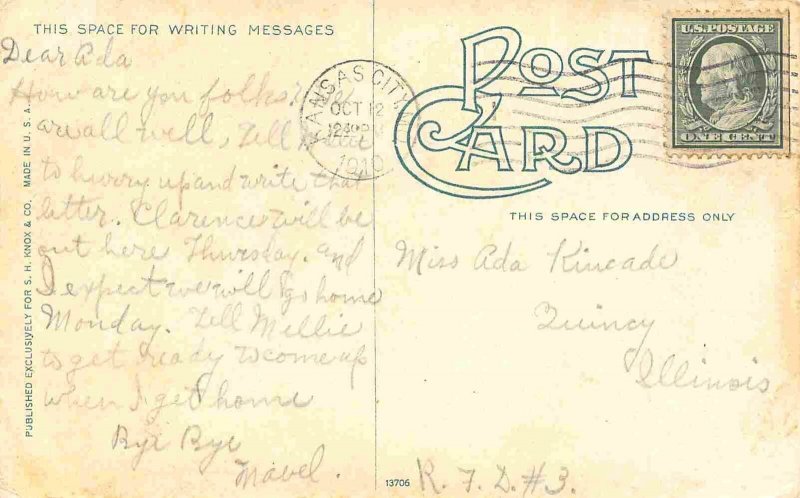 THIS SPACE FOR WRITING MESSAGES
Dear Ada
How are you folks? We
are all well, Tell
to hurry up and write that
letter. Clarence will be
out here Thursday. and
I expect we will go home
Monday. Tell Mellie
to get ready to come up
when I get home
Bye Bye
Mabel.
PUBLISHED EXCLUSIVELY FOR S. H. KNOX & CO. MADE IN U. S. A.
KANSAS CITY
OCT 12
1910
U.S. POSTAGE
ONE CENT
POST
CARD
THIS SPACE FOR ADDRESS ONLY
Miss Ada Kincade
Quincy
Illinois
R. F. D. #3.
13706